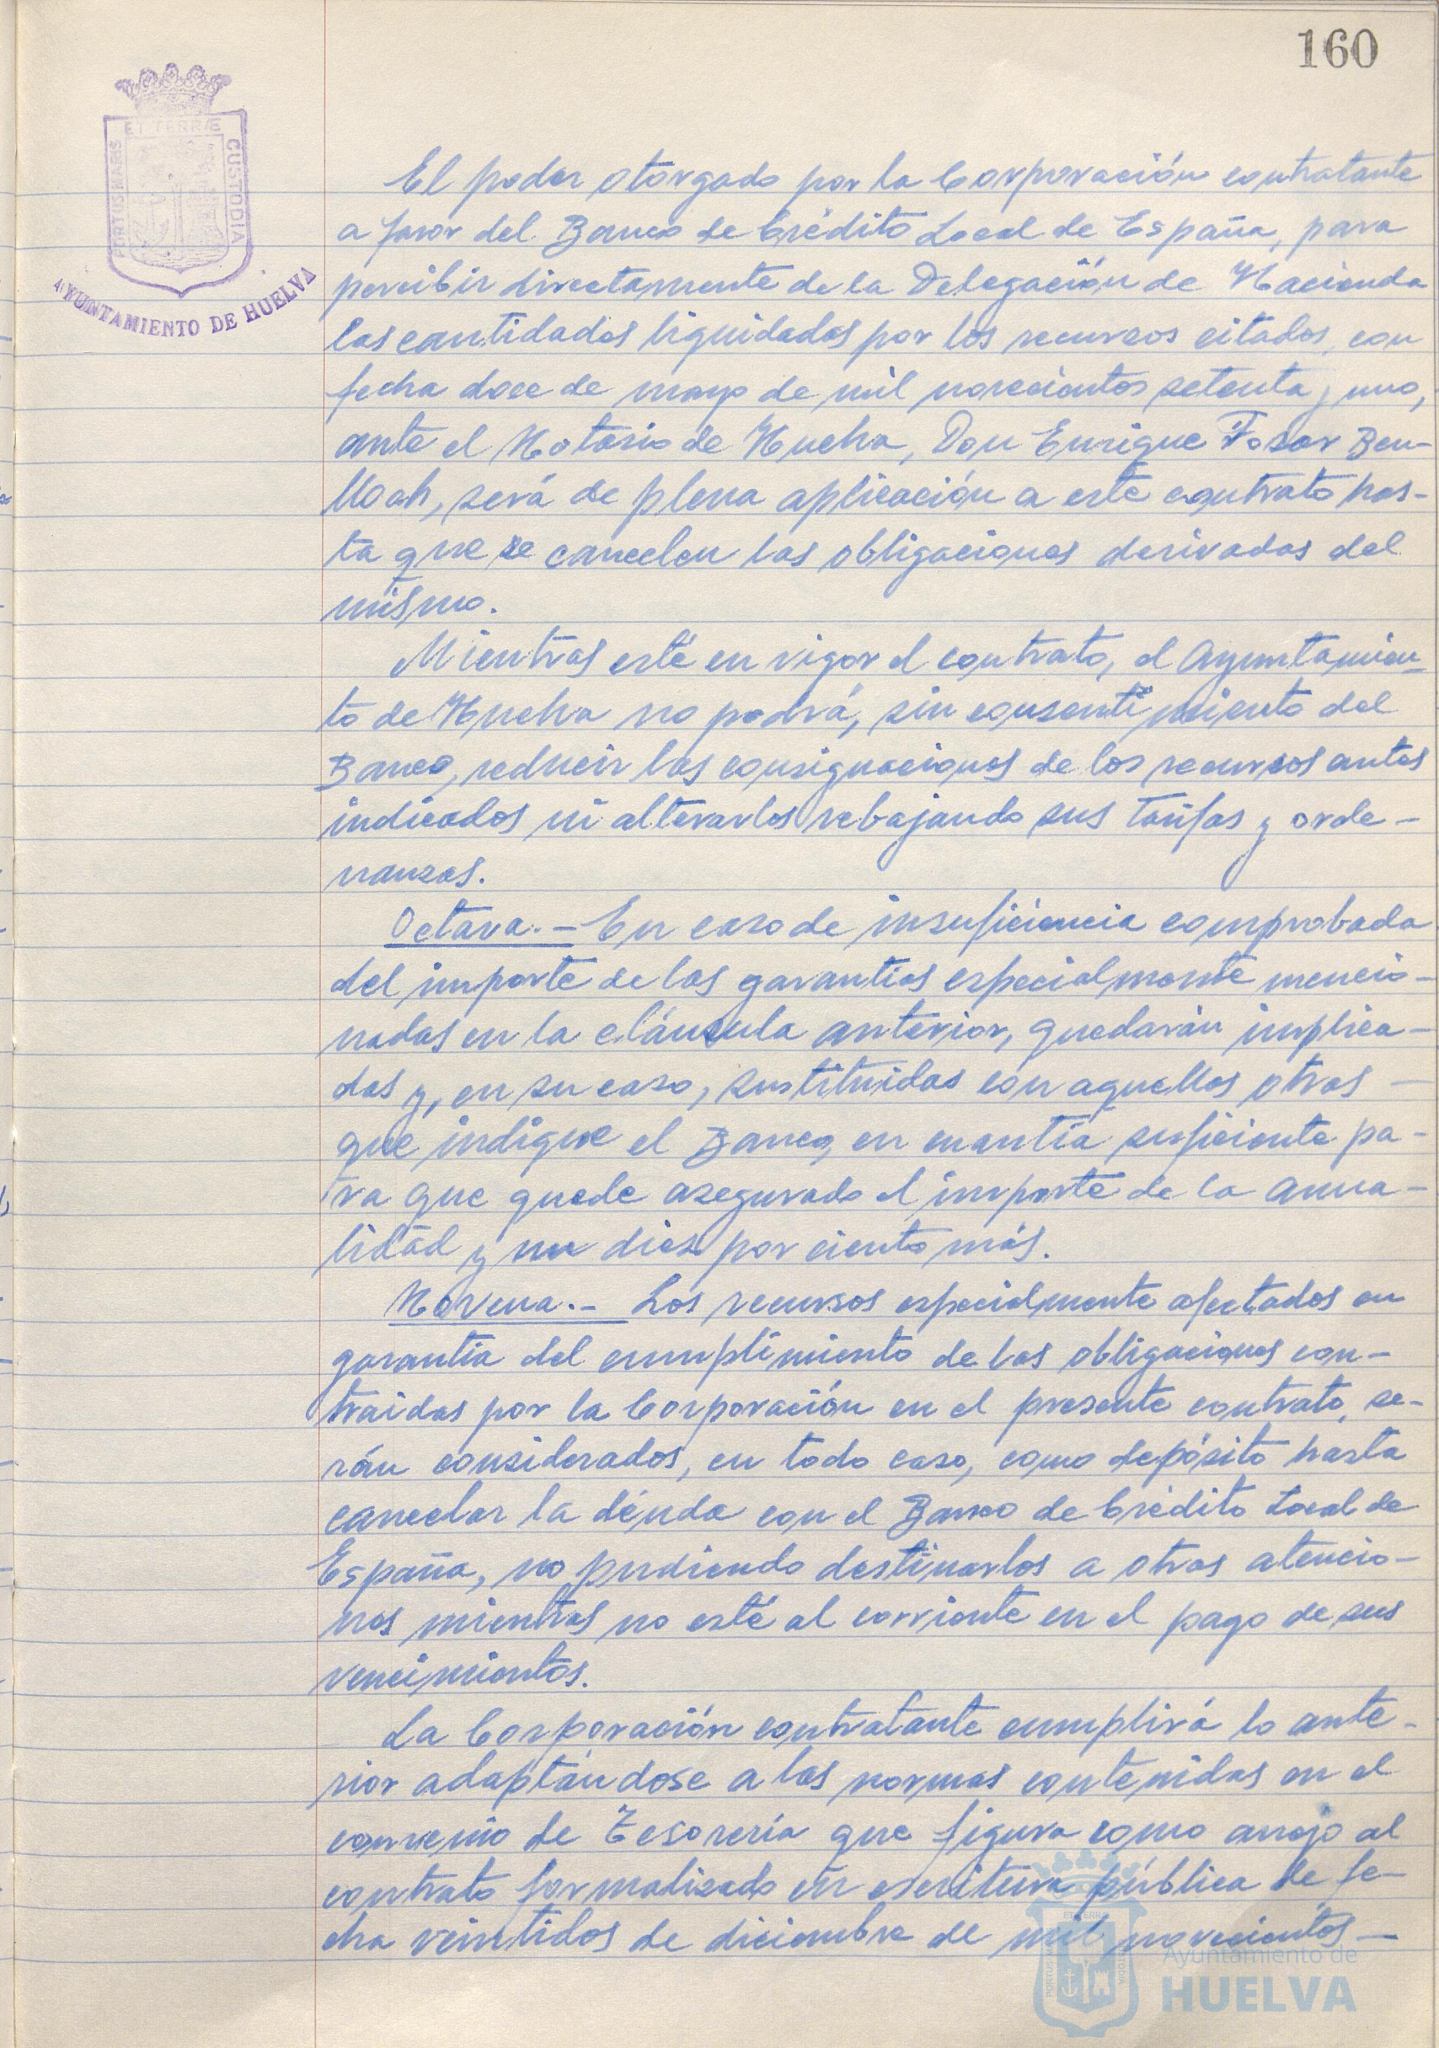 160
PORTUS MARIS ET TERRÆ CUSTODIA
AYUNTAMIENTO DE HUELVA
El poder otorgado por la Corporación contratante
a favor del Banco de Crédito Local de España, para
percibir directamente de la Delegación de Hacienda
las cantidades liquidadas por los recursos citados, con
fecha doce de mayo de mil novecientos setenta y uno,
ante el Notario de Huelva, Don Enrique Fosar Ben-
lloch, será de plena aplicación a este contrato has-
ta que se cancelen las obligaciones derivadas del
mismo.
Mientras esté en vigor el contrato, el Ayuntamien-
to de Huelva no podrá, sin consentimiento del
Banco, reducir las consignaciones de los recursos antes
indicados ni alterarlos rebajando sus tarifas y orde-
nanzas.
Octava.- En caso de insuficiencia comprobada
del importe de las garantías especialmente mencio-
nadas en la cláusula anterior, quedarán implica-
das y, en su caso, sustituidas con aquellas otras
que indique el Banco, en cuantía suficiente pa-
ra que quede asegurado el importe de la anua-
lidad y un diez por ciento más.
Novena.- Los recursos especialmente afectados en
garantía del cumplimiento de las obligaciones con-
traidas por la Corporación en el presente contrato, se-
rán considerados, en todo caso, como depósito hasta
cancelar la deuda con el Banco de Crédito Local de
España, no pudiendo destinarlos a otras atencio-
nes mientras no esté al corriente en el pago de sus
vencimientos.
La Corporación contratante cumplirá lo ante-
rior adaptándose a las normas contenidas en el
convenio de Tesorería que figura como anejo al
contrato formalizado en escritura pública de fe-
cha veintidos de diciembre de mil novecientos
Ayuntamiento de
HUELVA